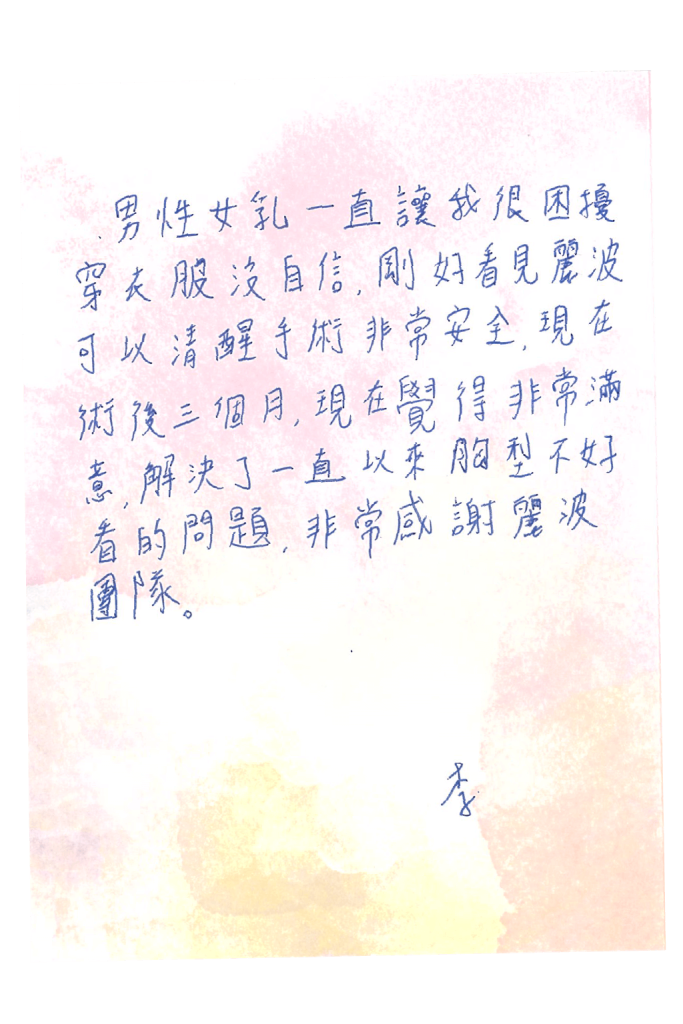 男性女乳一直讓我很困擾
穿衣服沒自信,剛好看見麗波
可以清醒手術非常安全,現在
術後三個月,現在覺得非常滿
意,解決了一直以來胸型不好
看的問題,非常感謝麗波
團隊。
李